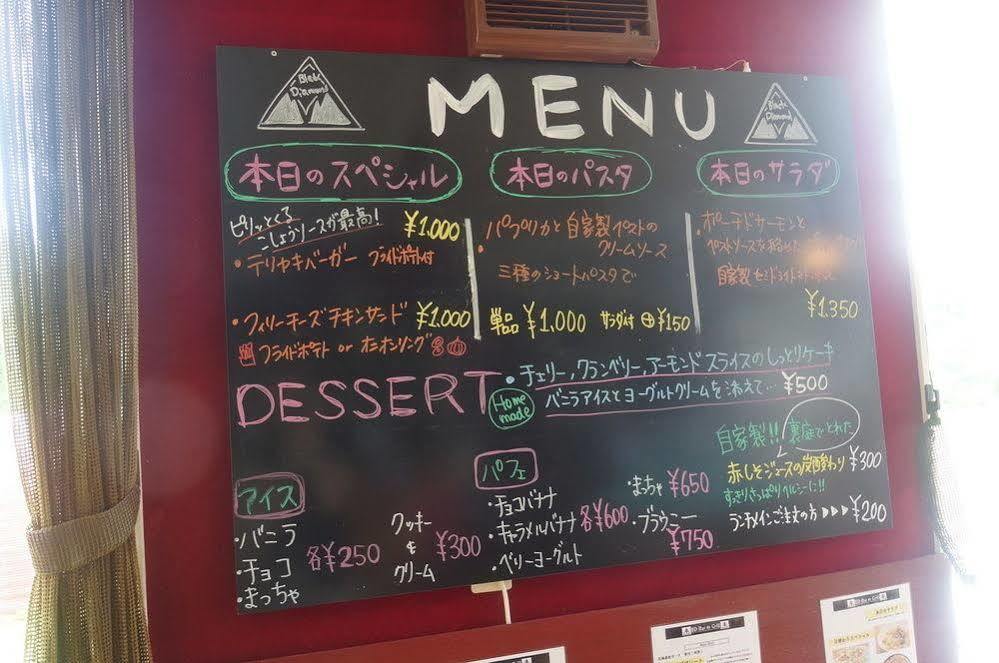 Black
Diamond
MENU
Black
Diamond
本日のスペシャル
ピリッとくる
こしょうソースが最高!
¥1,000
・テリヤキバーガー フライドポテト付
・フィリーチーズチキンサンド ¥1,000
フライドポテト or オニオンリング
本日のパスタ
・パプリカと自家製ペストの
クリームソース
三種のショートパスタで
単品 ¥1,000 サラダ付 ⊕¥150
本日のサラダ
・ポーチドサーモンと
ペストソースを
自家製セミドライトマト
¥1,350
DESSERT
Home
made
・チェリー,クランベリー,アーモンドスライスのしっとりケーキ
バニラアイスとヨーグルトクリームを添えて… ¥500
アイス
・バニラ
・チョコ
・まっちゃ
各¥250
クッキー
&
クリーム
¥300
パフェ
・チョコバナナ
・キャラメルバナナ
・ベリーヨーグルト
各¥600
・まちゃ ¥650
・ブラウニー
¥750
自家製!! 裏庭でとれた
赤しそジュースの炭酸割り ¥300
すっきりさっぱりヘルシーに!!
ランチメインご注文の方 ▶▶▶ ¥200